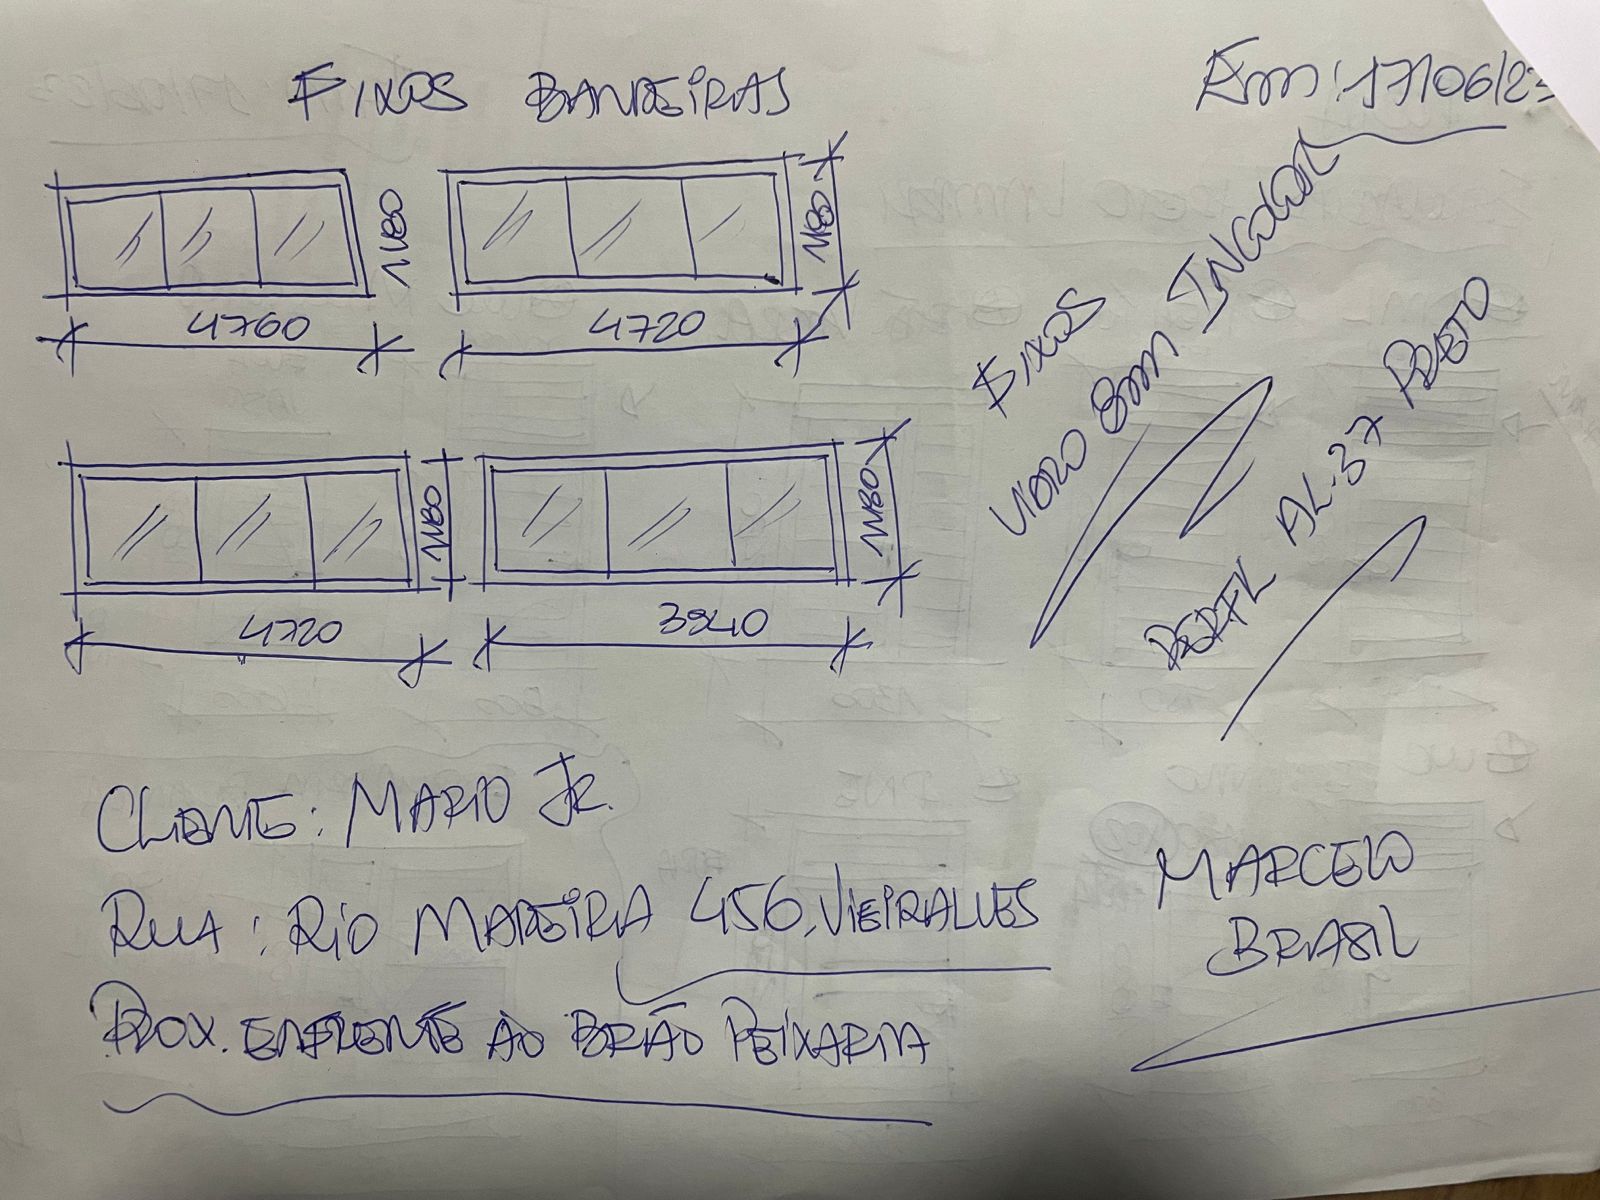 FIXOS BANDEIRAS
Em: 17/06/23
4760
1180
4720
1180
4720
1180
3940
1180
FIXOS
VIDRO 8mm INCOLOR
PERFIL AL-37 PRETO
CLIENTE: MARIO JR.
RUA: RIO MADEIRA 456, VIEIRALVES
PROX. ENFRENTE AO BRIÃO PEIXARIA
MARCELO
BRASIL